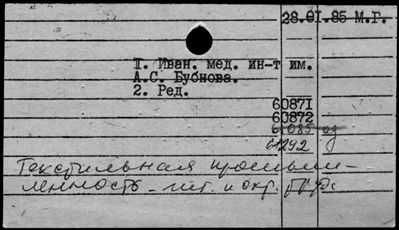 28.01.85 М.Г.
I. Иван. мед. ин-т им.
А.С. Бубнова.
2. Ред.
60871
60872
61085 од
61292
Текстильная промыш-
ленность - гит. и окр.